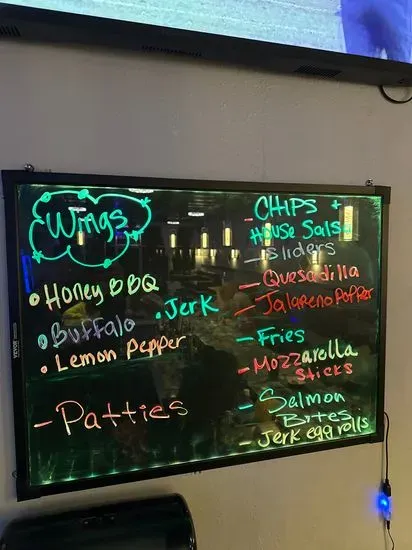 Wings
• Honey BBQ
• Buffalo
• Jerk
• Lemon Pepper
- Patties
- CHIPS +
House Salsa
- Sliders
- Quesadilla
- Jalapeno Popper
- Fries
- Mozzarella
Sticks
- Salmon
Bites
- Jerk egg rolls
VEVOR